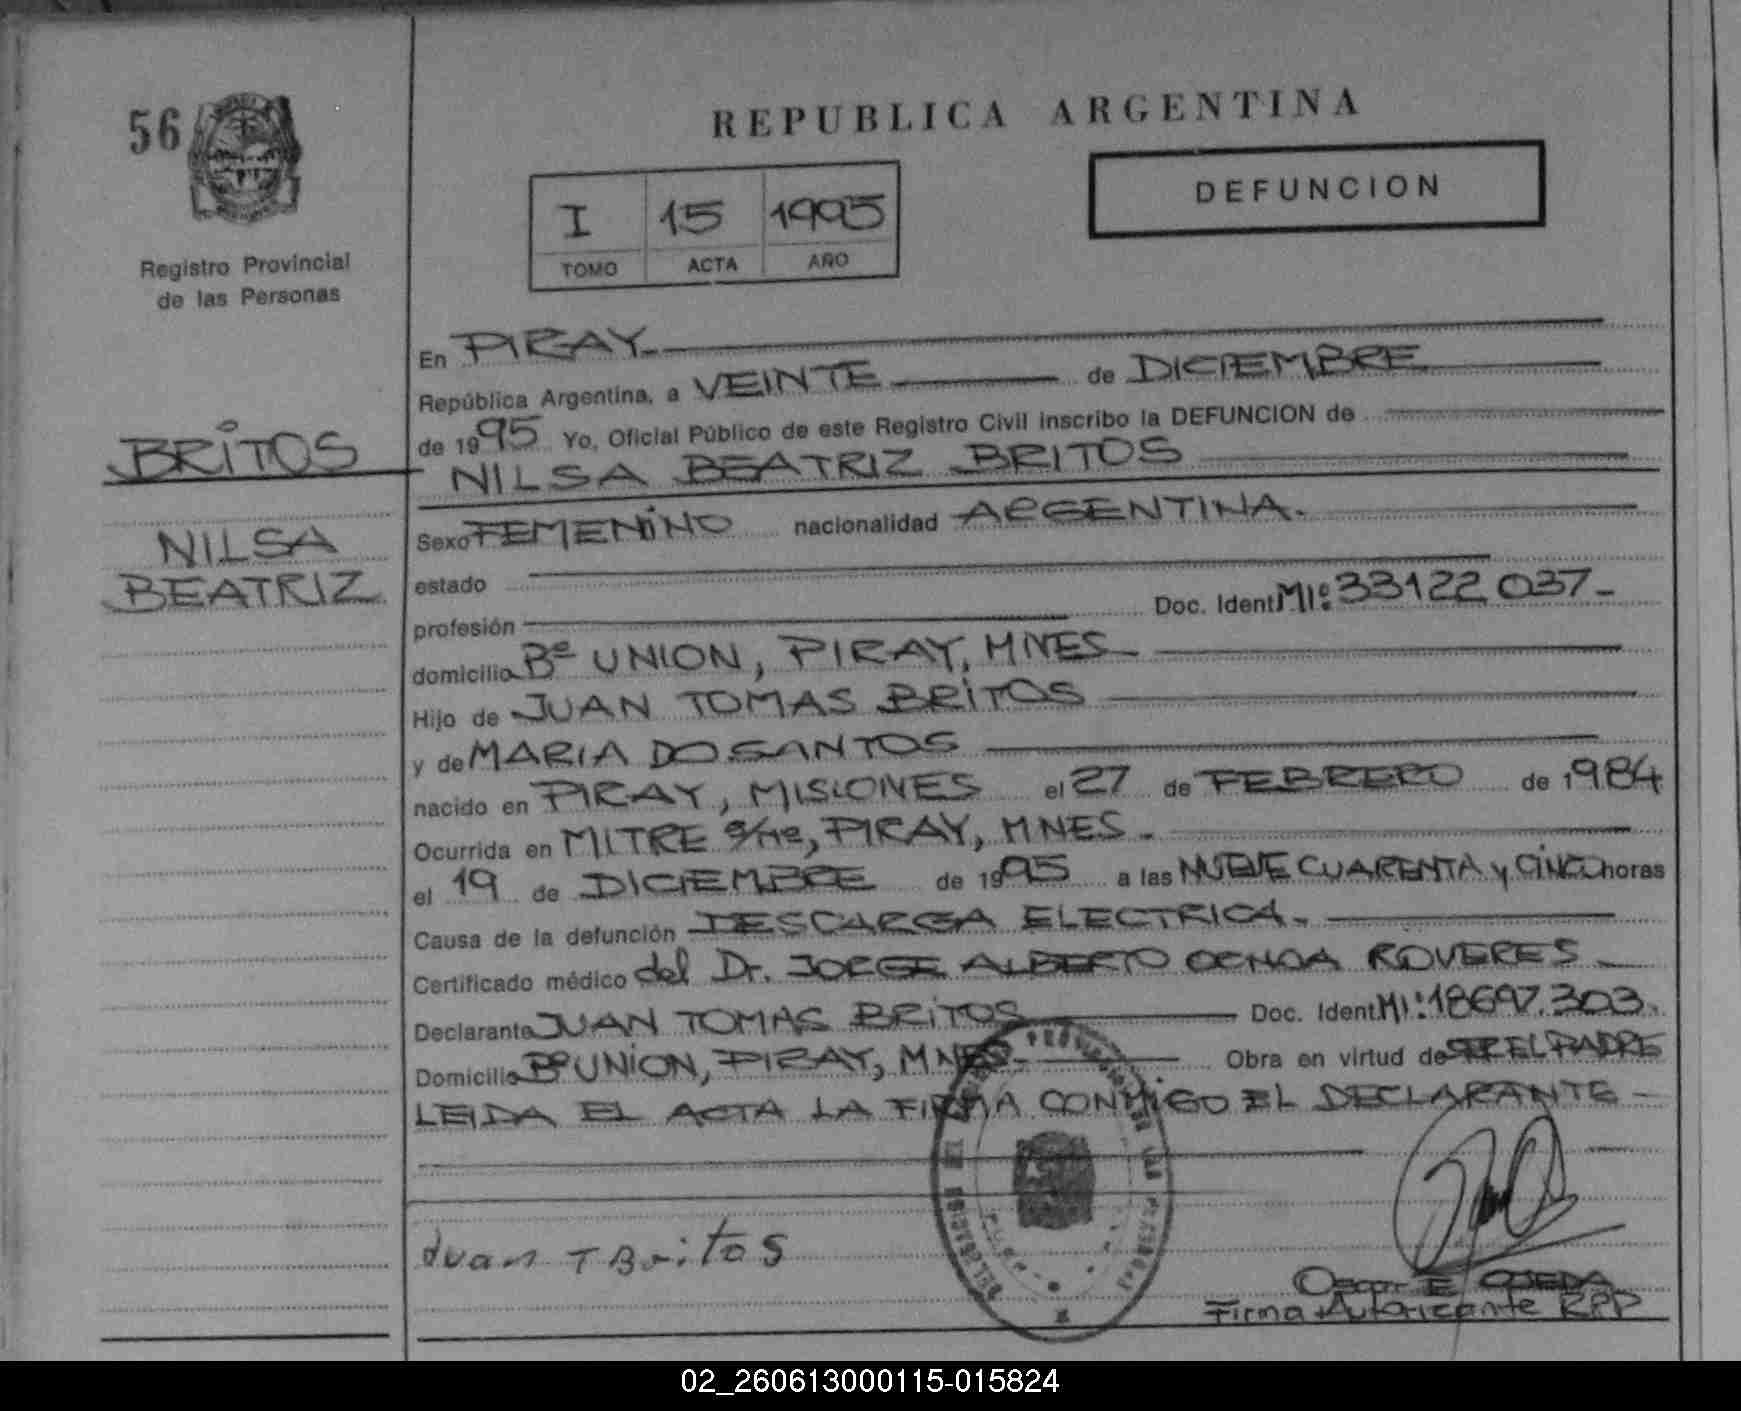 56
REPUBLICA ARGENTINA
I 15 1995
TOMO ACTA AÑO
DEFUNCION
Registro Provincial
de las Personas
BRITOS
NILSA
BEATRIZ
En PIRAY
República Argentina, a VEINTE de DICIEMBRE
de 1995 Yo, Oficial Público de este Registro Civil inscribo la DEFUNCION de
NILSA BEATRIZ BRITOS
Sexo FEMENINO nacionalidad ARGENTINA.
estado
profesión Doc. Ident MI: 33122037-
domicilio Bº UNION, PIRAY, MNES
Hijo de JUAN TOMAS BRITOS
y de MARIA DO SANTOS
nacido en PIRAY, MISIONES el 27 de FEBRERO de 1984
Ocurrida en MITRE S/Nº, PIRAY, MNES.
el 19 de DICIEMBRE de 1995 a las NUEVE CUARENTA y CINCO horas
Causa de la defunción DESCARGA ELECTRICA.
Certificado médico del Dr. JORGE ALBERTO OCHOA ROVERES
Declarante JUAN TOMAS BRITOS Doc. Ident MI: 18697.303.
Domicilio Bº UNION, PIRAY, MNES. Obra en virtud de SER EL PADRE
LEIDA EL ACTA LA FIRMA CONMIGO EL DECLARANTE
Juan T Britos
Oscar E OJEDA
Firma Autorizante RPP
02_260613000115-015824